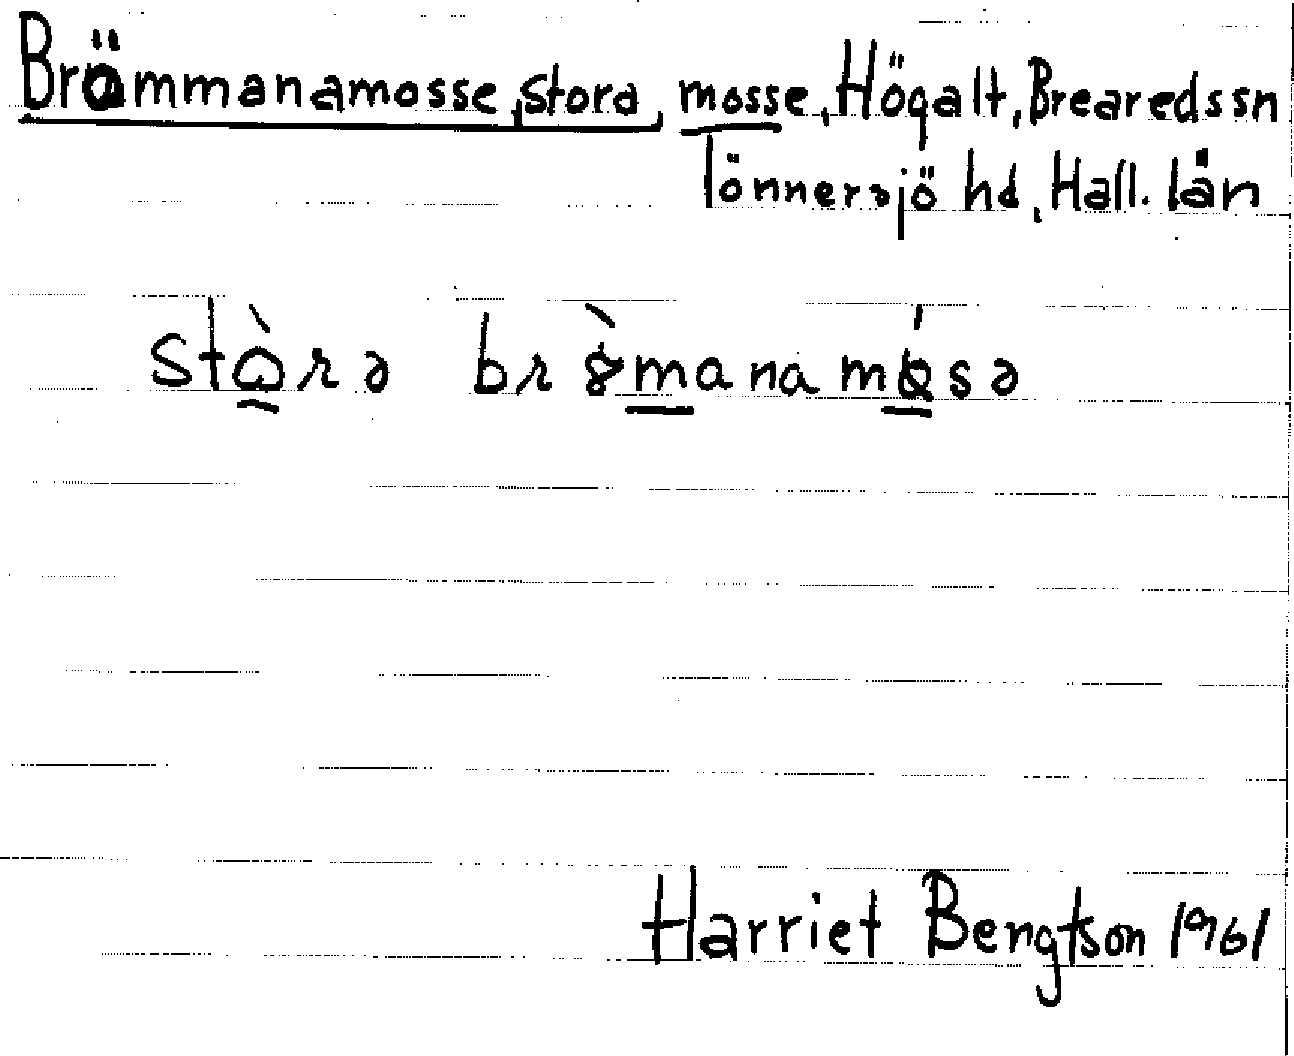 Brömmanamosse, stora, mosse, Högalt, Breareds sn
Tönnersjö hd, Hall. län
stòrə bròmanamósə
Harriet Bengtson 1961